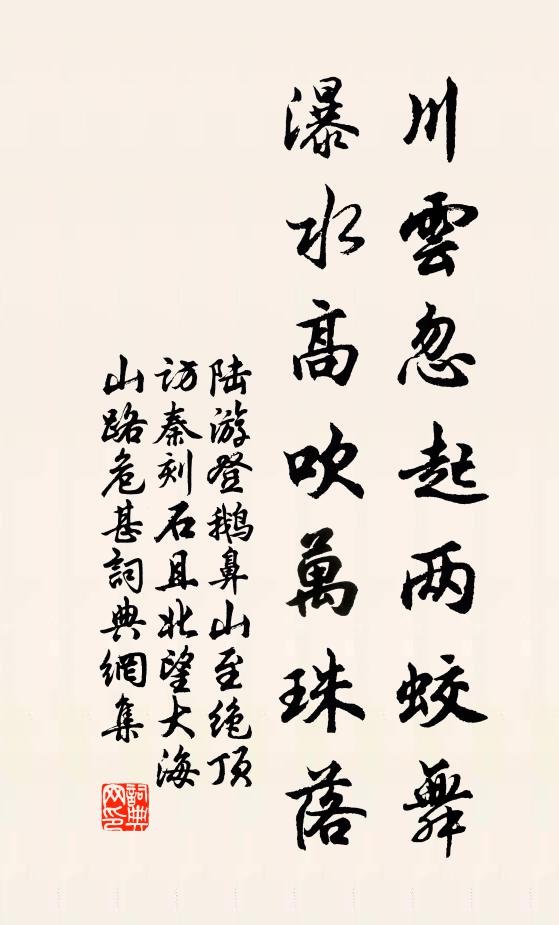 川雲忽起两蛟舞
瀑水高吹萬珠落
陆游登鹅鼻山至绝顶
访秦刻石且北望大海
山路危甚詞典網集
詞典
网印